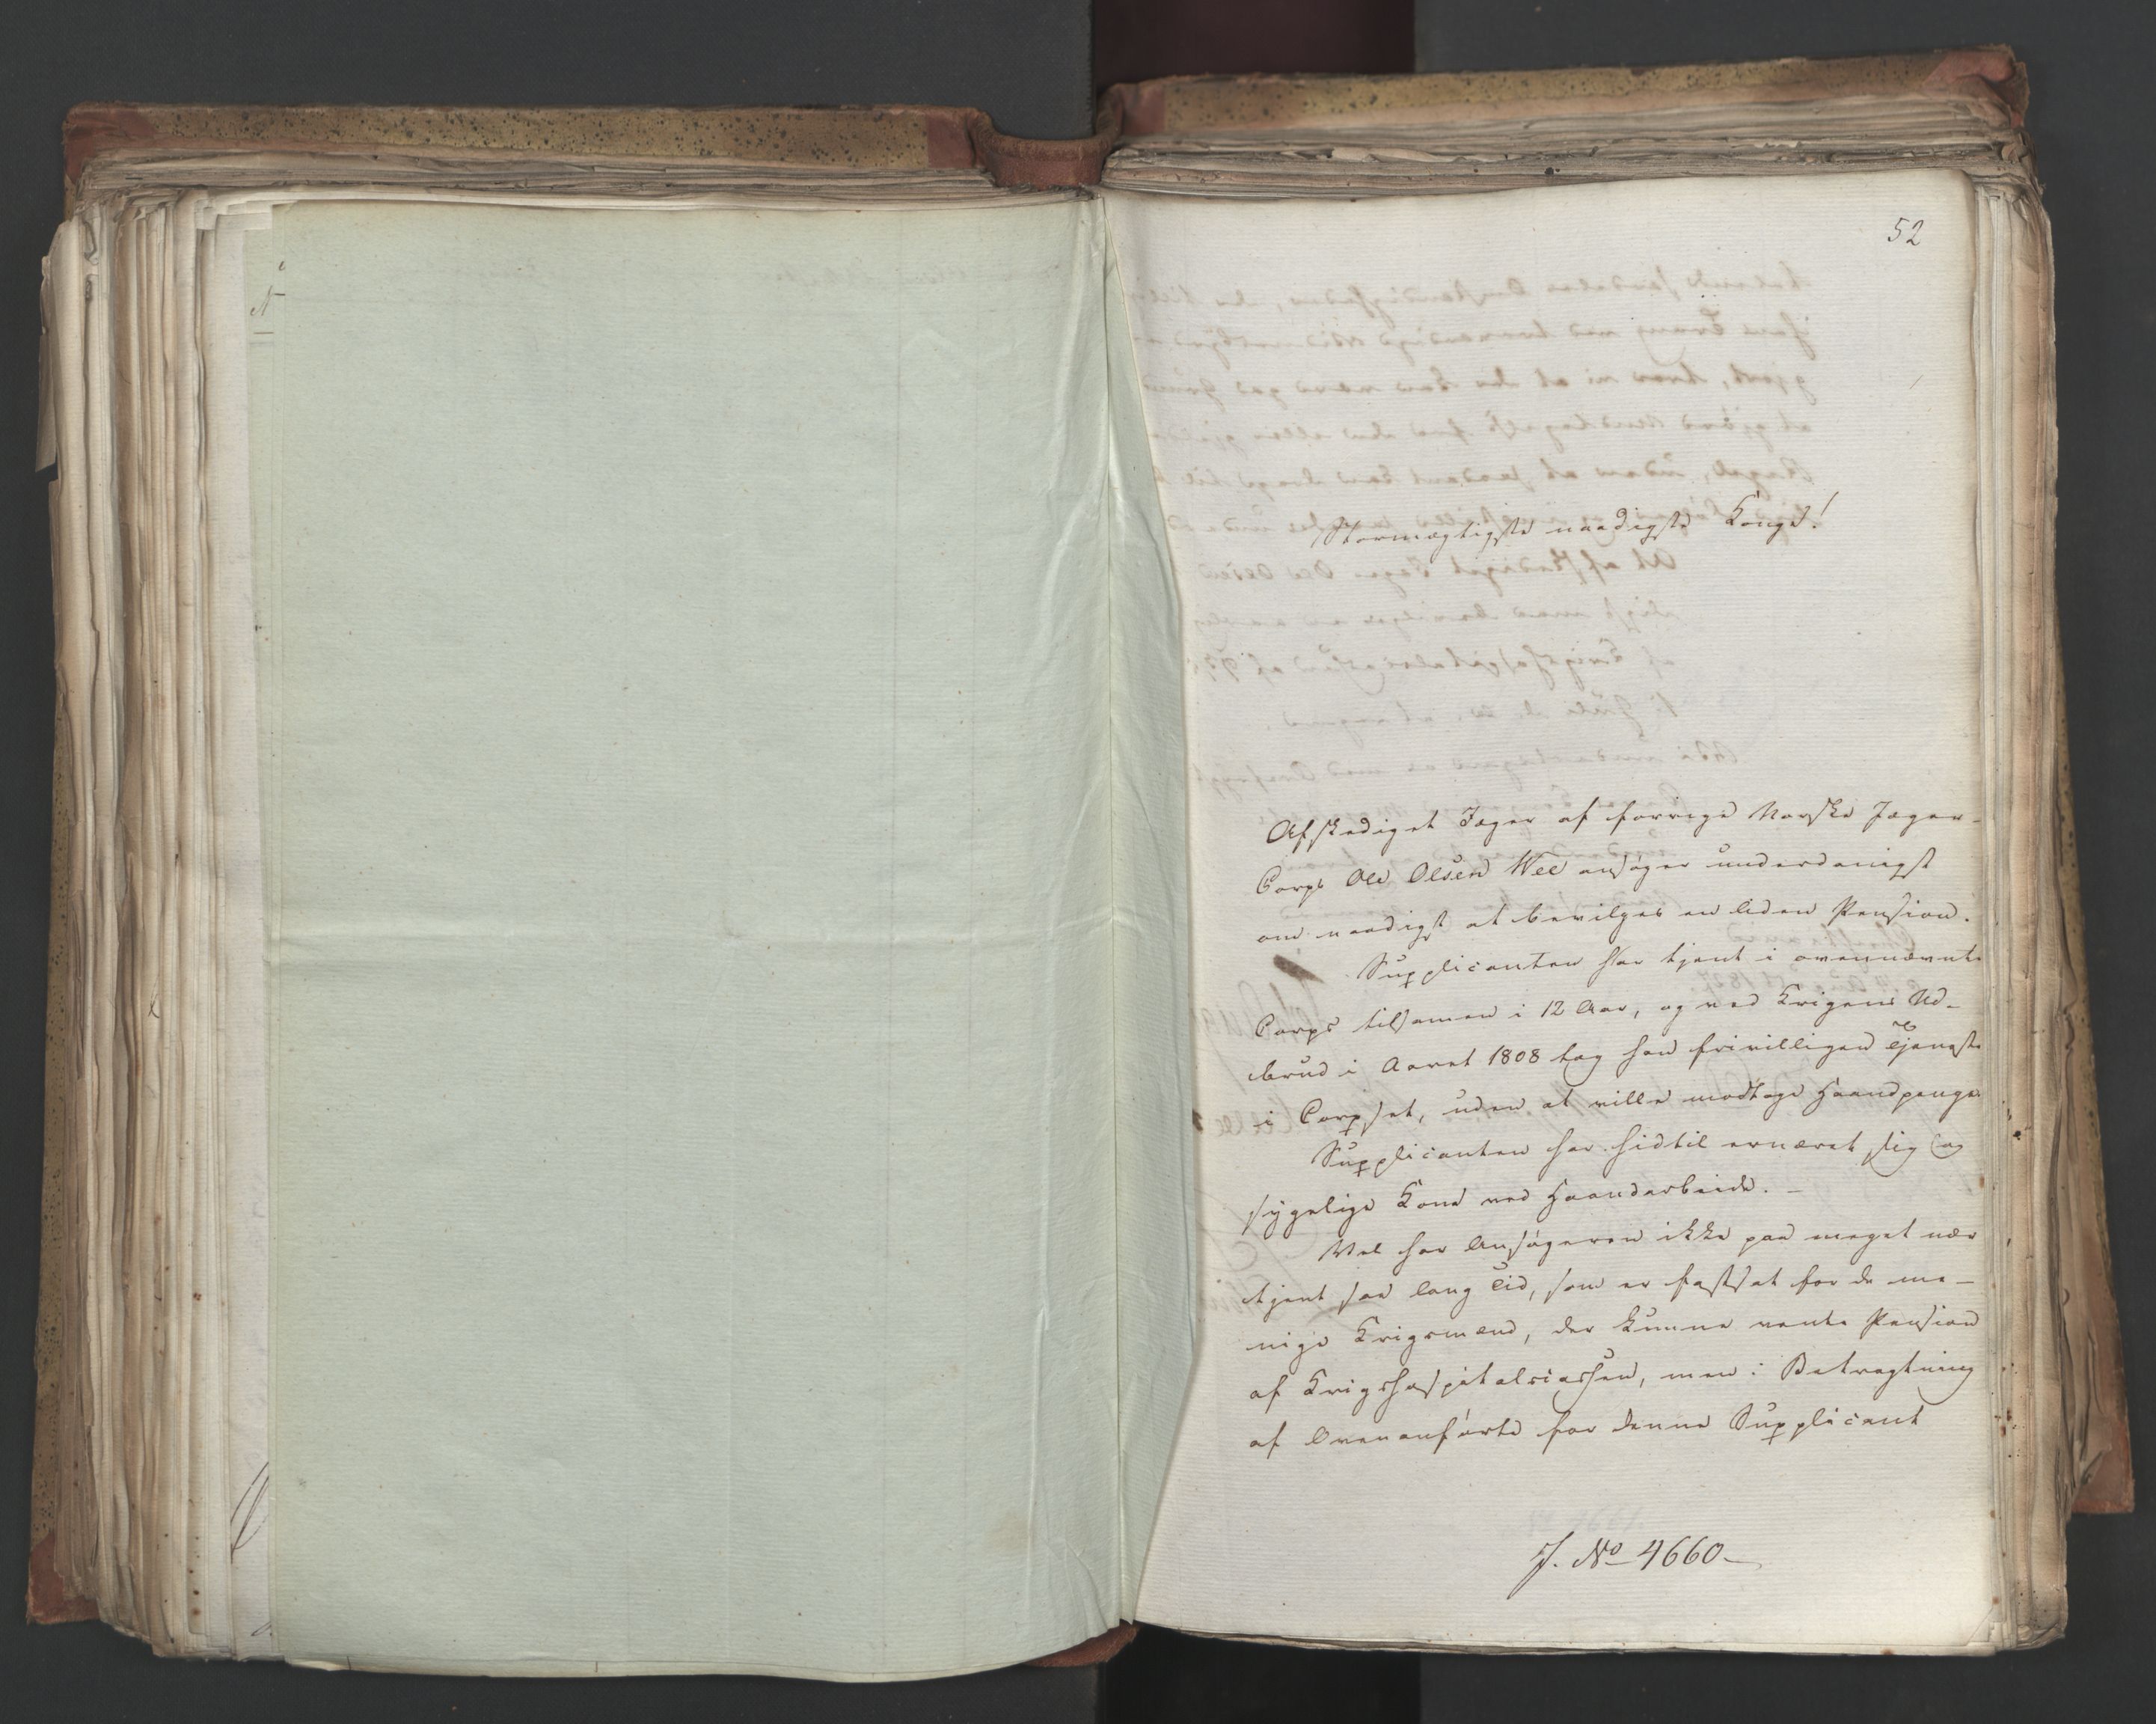 52
Stormægtigste naadigste Konge!
Afskediget Jæger af forrige Norske Jæger-
Corps Ole Olsen Wee ansøger underdanigst
om naadigst at bevilges en liden Pension.
Supplicanten har tjent i ovennævnte
Corps tilsamen i 12 Aar, og ved Krigens Ud-
brud i Aaret 1808 tog han frivilligen Tjeneste
i Corpset, uden at ville modtage Haandpenge.
Supplicanten har hidtil ernæret sig og
sygelige Kone ved Haandarbeide. –
Vel har Ansøgeren ikke paa meget nær
tjent saa lang Tid, som er fastsat for de me-
nige Krigsmænd, der kunne vente Pension
af Krigshospitalscassen, men i Betragtning
af Ovenanførte for denne Supplicant
J. No 4660